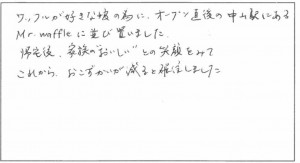 ワッフルが好きな娘の為に、オープン直後の中山駅にある
Mr.waffleに並び買いました。
帰宅後、家族の"おいしい"との笑顔をみて
これから、おこずかいが減ると確信しました